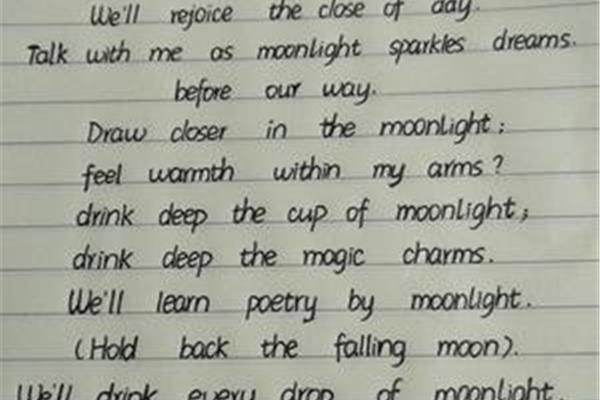 We'll rejoice the close of day.
Talk with me as moonlight sparkles dreams.
before our way.
Draw closer in the moonlight:
feel warmth within my arms?
drink deep the cup of moonlight;
drink deep the magic charms.
We'll learn poetry by moonlight.
(Hold back the falling moon).
We'll drink every drop of moonlight.